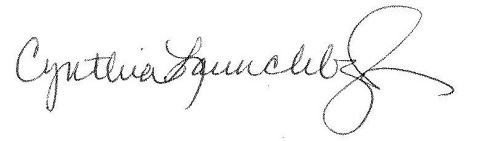 Cynthia Launchbaugh